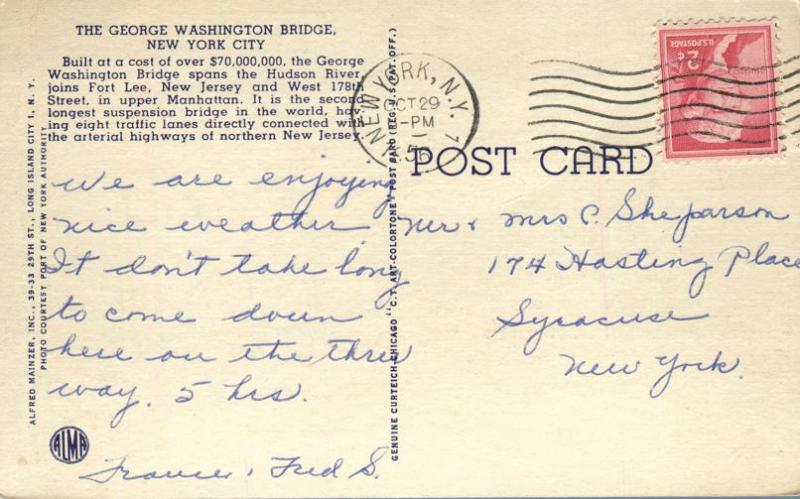 THE GEORGE WASHINGTON BRIDGE,
NEW YORK CITY
Built at a cost of over $70,000,000, the George
Washington Bridge spans the Hudson River,
joins Fort Lee, New Jersey and West 178th
Street, in upper Manhattan. It is the second
longest suspension bridge in the world, hav-
ing eight traffic lanes directly connected with
the arterial highways of northern New Jersey.
We are enjoying
nice weather.
It don't take long
to come down
here on the thru
way. 5 hrs.
Fred S.
ALMA
ALFRED MAINZER, INC., 39-33 29TH ST., LONG ISLAND CITY 1, N. Y.
PHOTO COURTESY PORT OF NEW YORK AUTHORITY
GENUINE CURTEICH-CHICAGO "C.T. ART-COLORTONE" POST CARD (REG. U.S. PAT. OFF.)
NEW YORK, N.Y. 1
OCT 29
-PM
POST CARD
U.S. POSTAGE
2¢
Mr & Mrs P. Sheparson
174 Hasting Place
Syracuse
New York.